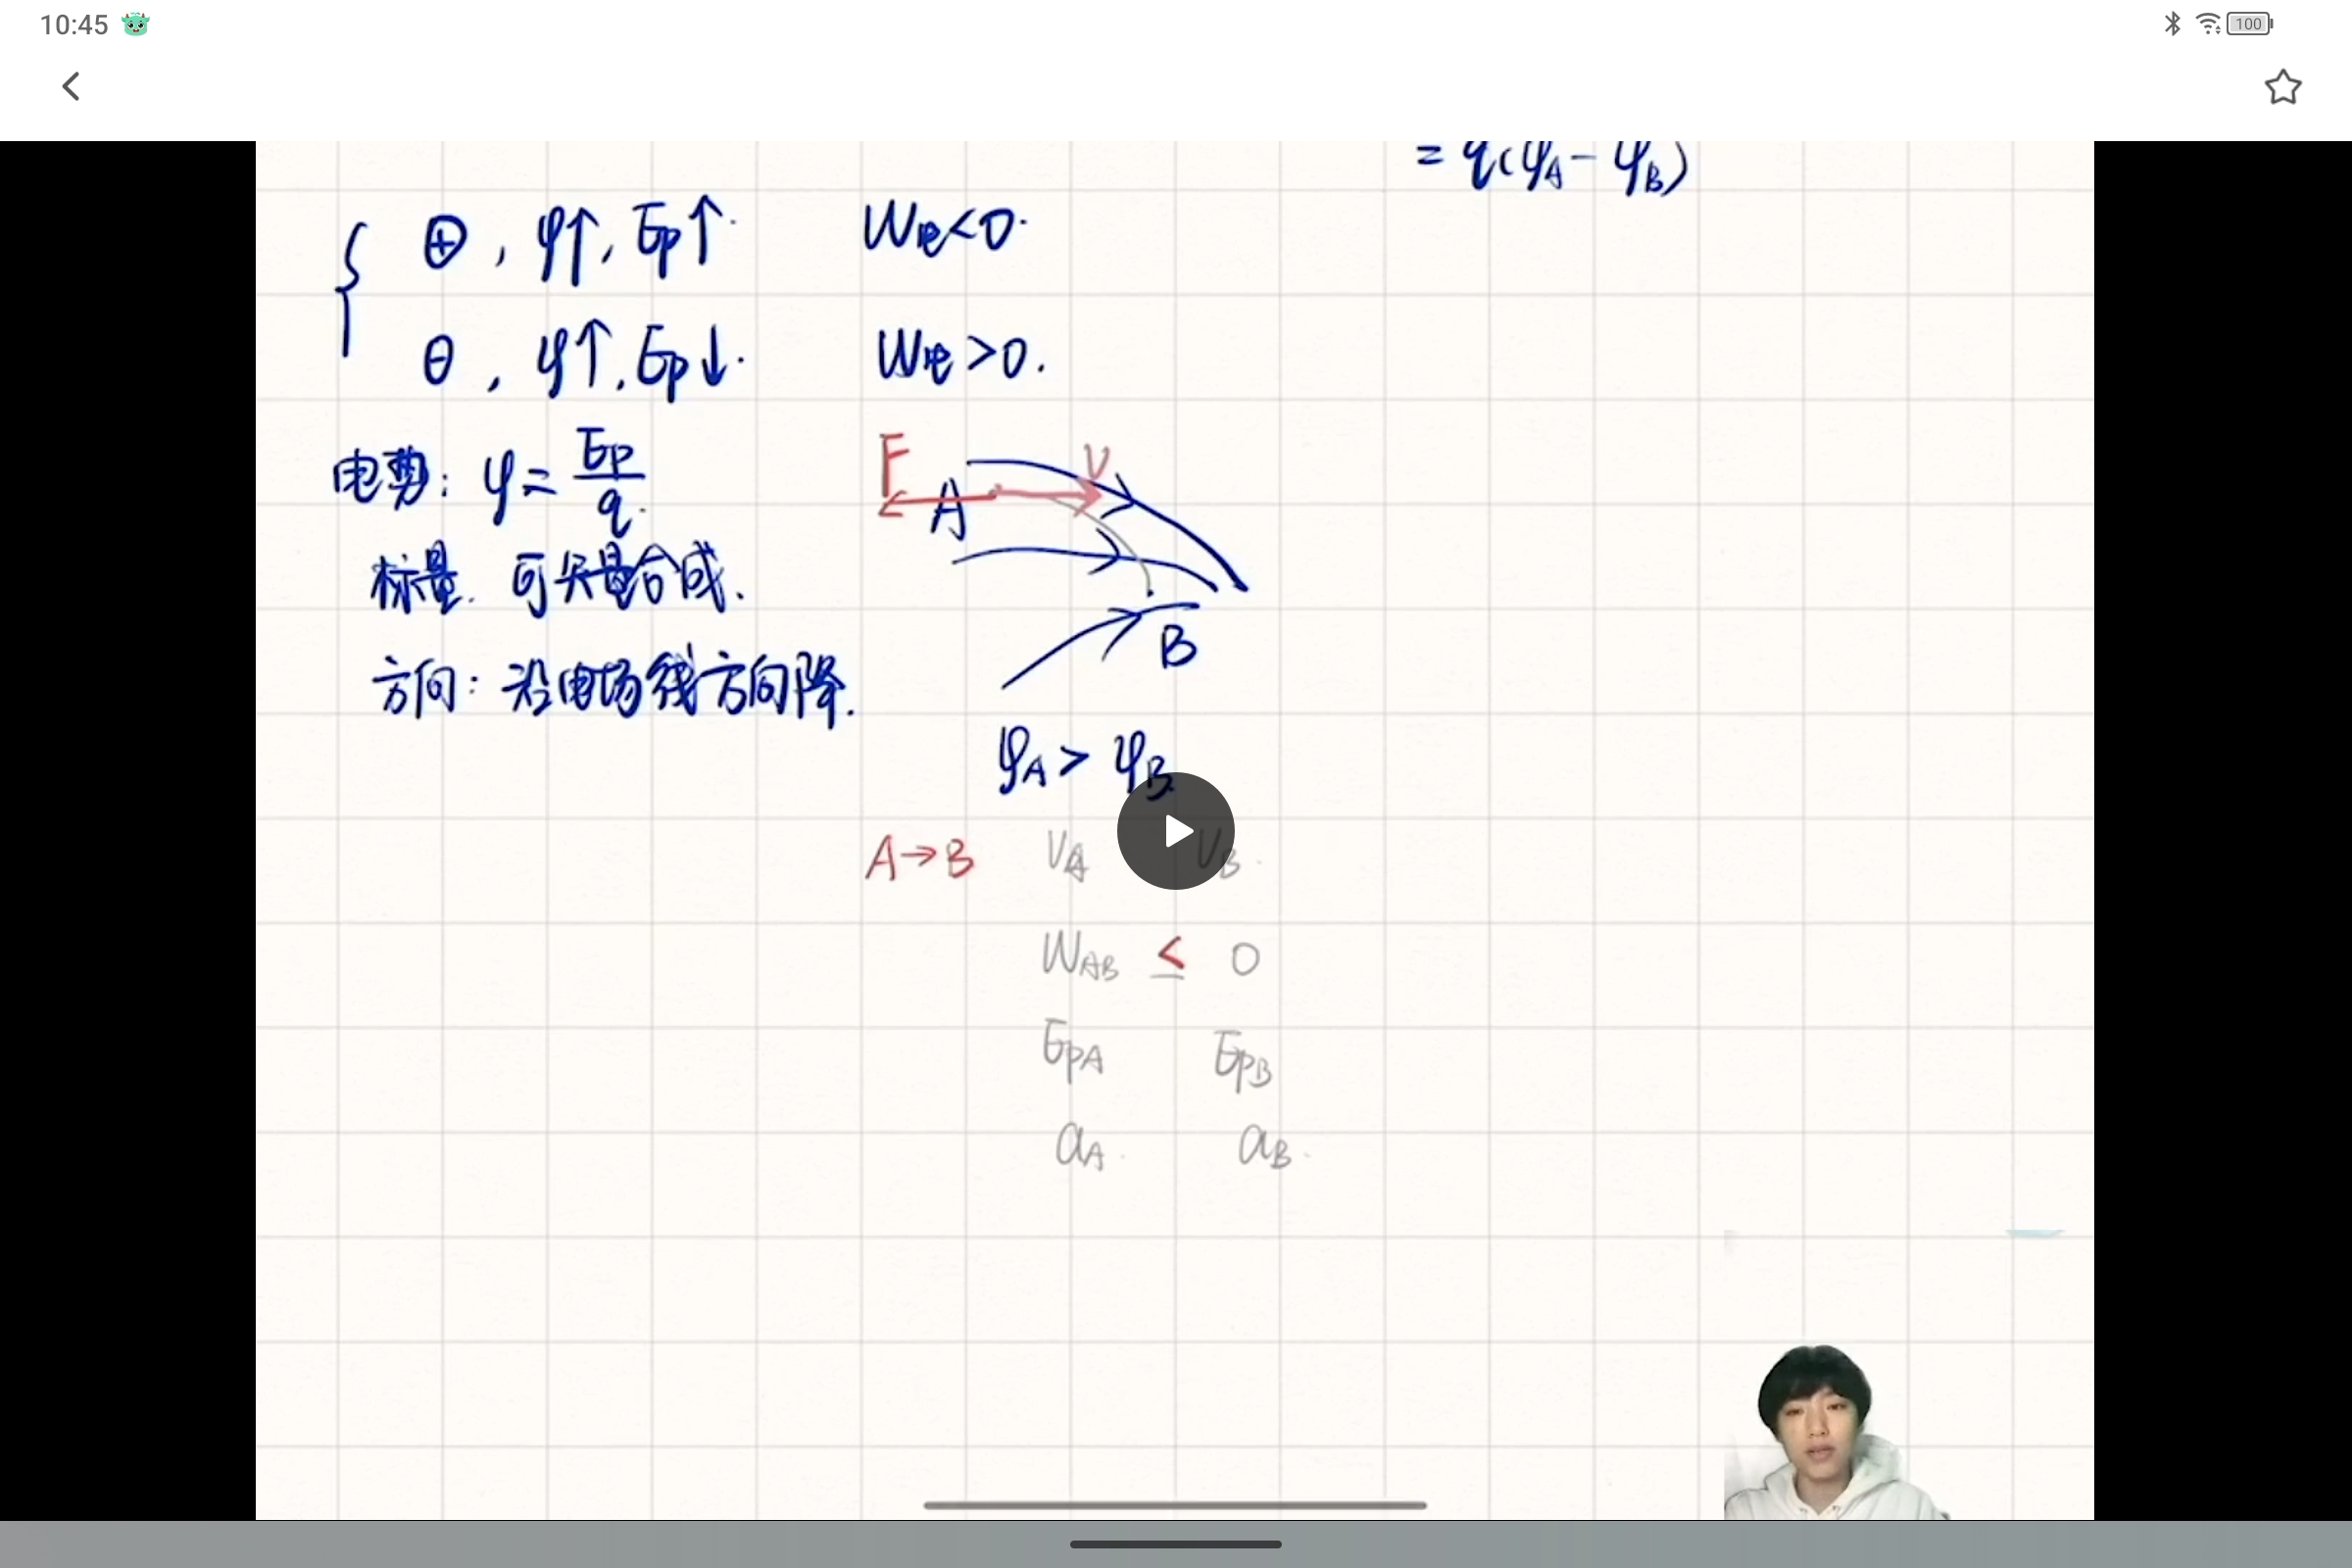 10:45
100
= q(φA - φB)
⊕, φ↑, Ep↑. W电<0.
⊖, φ↑, Ep↓. W电>0.
电势: φ = Ep/q.
F V
A
标量. 可矢量合成.
B
方向: 沿电场线方向降.
φA > φB
A→B VA VB.
WAB < 0
EpA EpB
aA. aB.